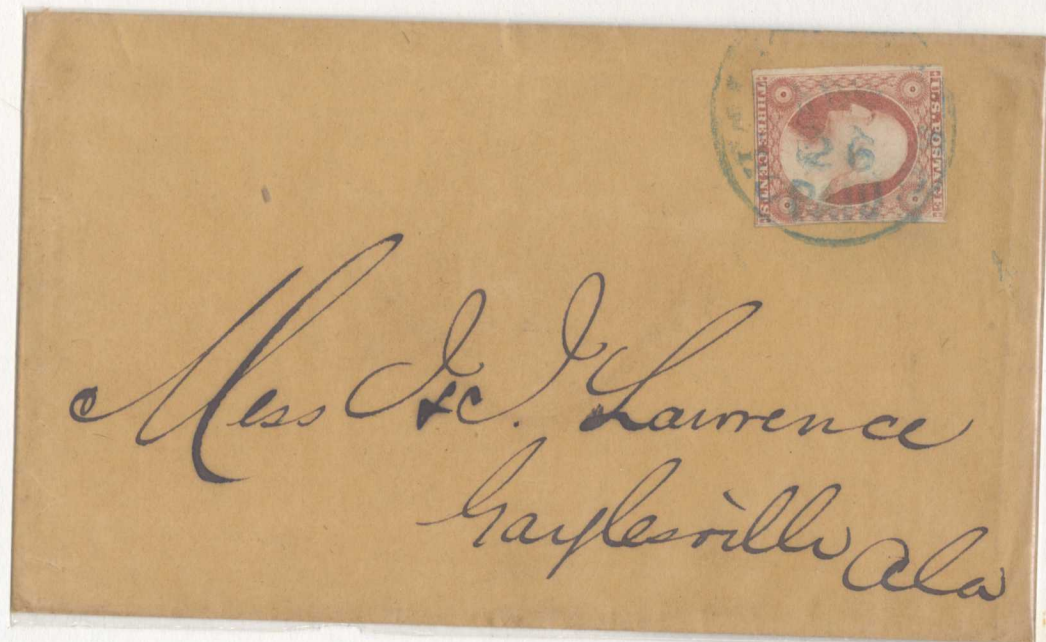 U.S. POSTAGE
THREE CENTS
Mess J & J. Lawrence
Gaylesville Ala